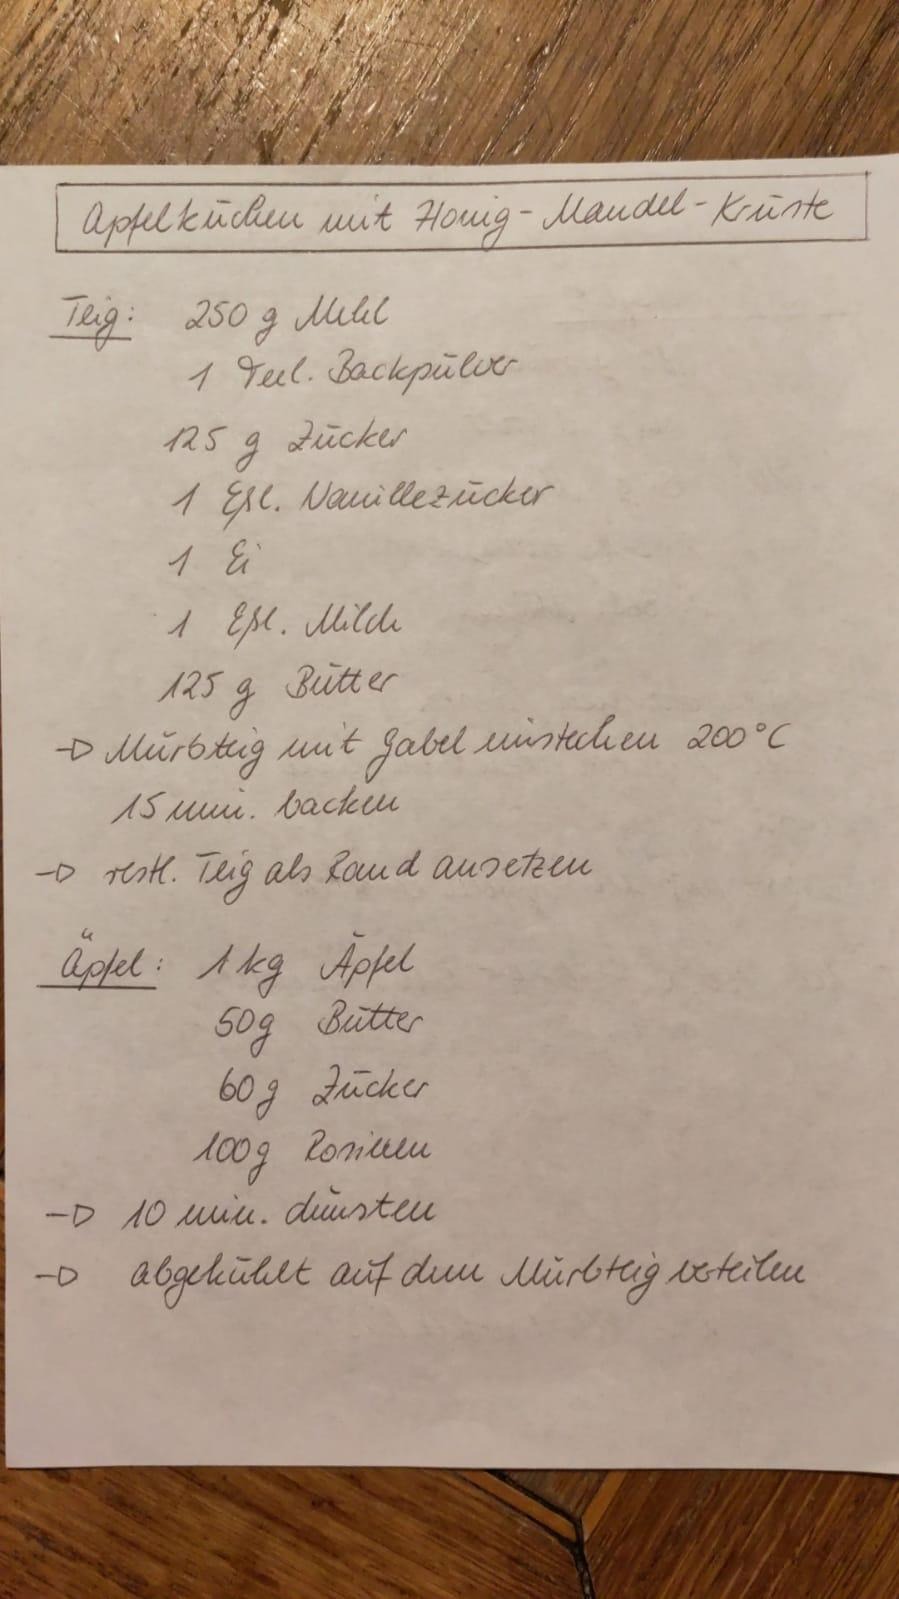 Apfelkuchen mit Honig-Mandel-Kruste
Teig: 250 g Mehl
1 Teel. Backpulver
125 g Zucker
1 Eßl. Vanillezucker
1 Ei
1 Eßl. Milch
125 g Butter
→ Mürbteig mit Gabel einstechen 200°C
15 min. backen
→ restl. Teig als Rand ansetzen
Äpfel: 1 kg Äpfel
50g Butter
60g Zucker
100g Rosinen
→ 10 min. dünsten
→ abgekühlt auf dem Mürbteig verteilen